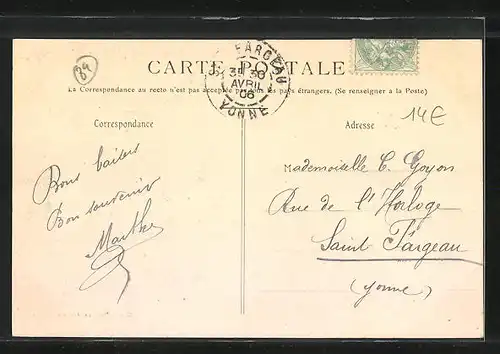 89
CARTE POSTALE
FARGEAU
3E 30
AVRIL
06
YONNE
La Correspondance au recto n'est pas acceptée par tous les pays étrangers. (Se renseigner à la Poste)
14€
Correspondance
Bons baisers
Bon souvenir
Marthe
Adresse
Mademoiselle C. Goyon
Rue de l'Horloge
Saint Fargeau
(Yonne)